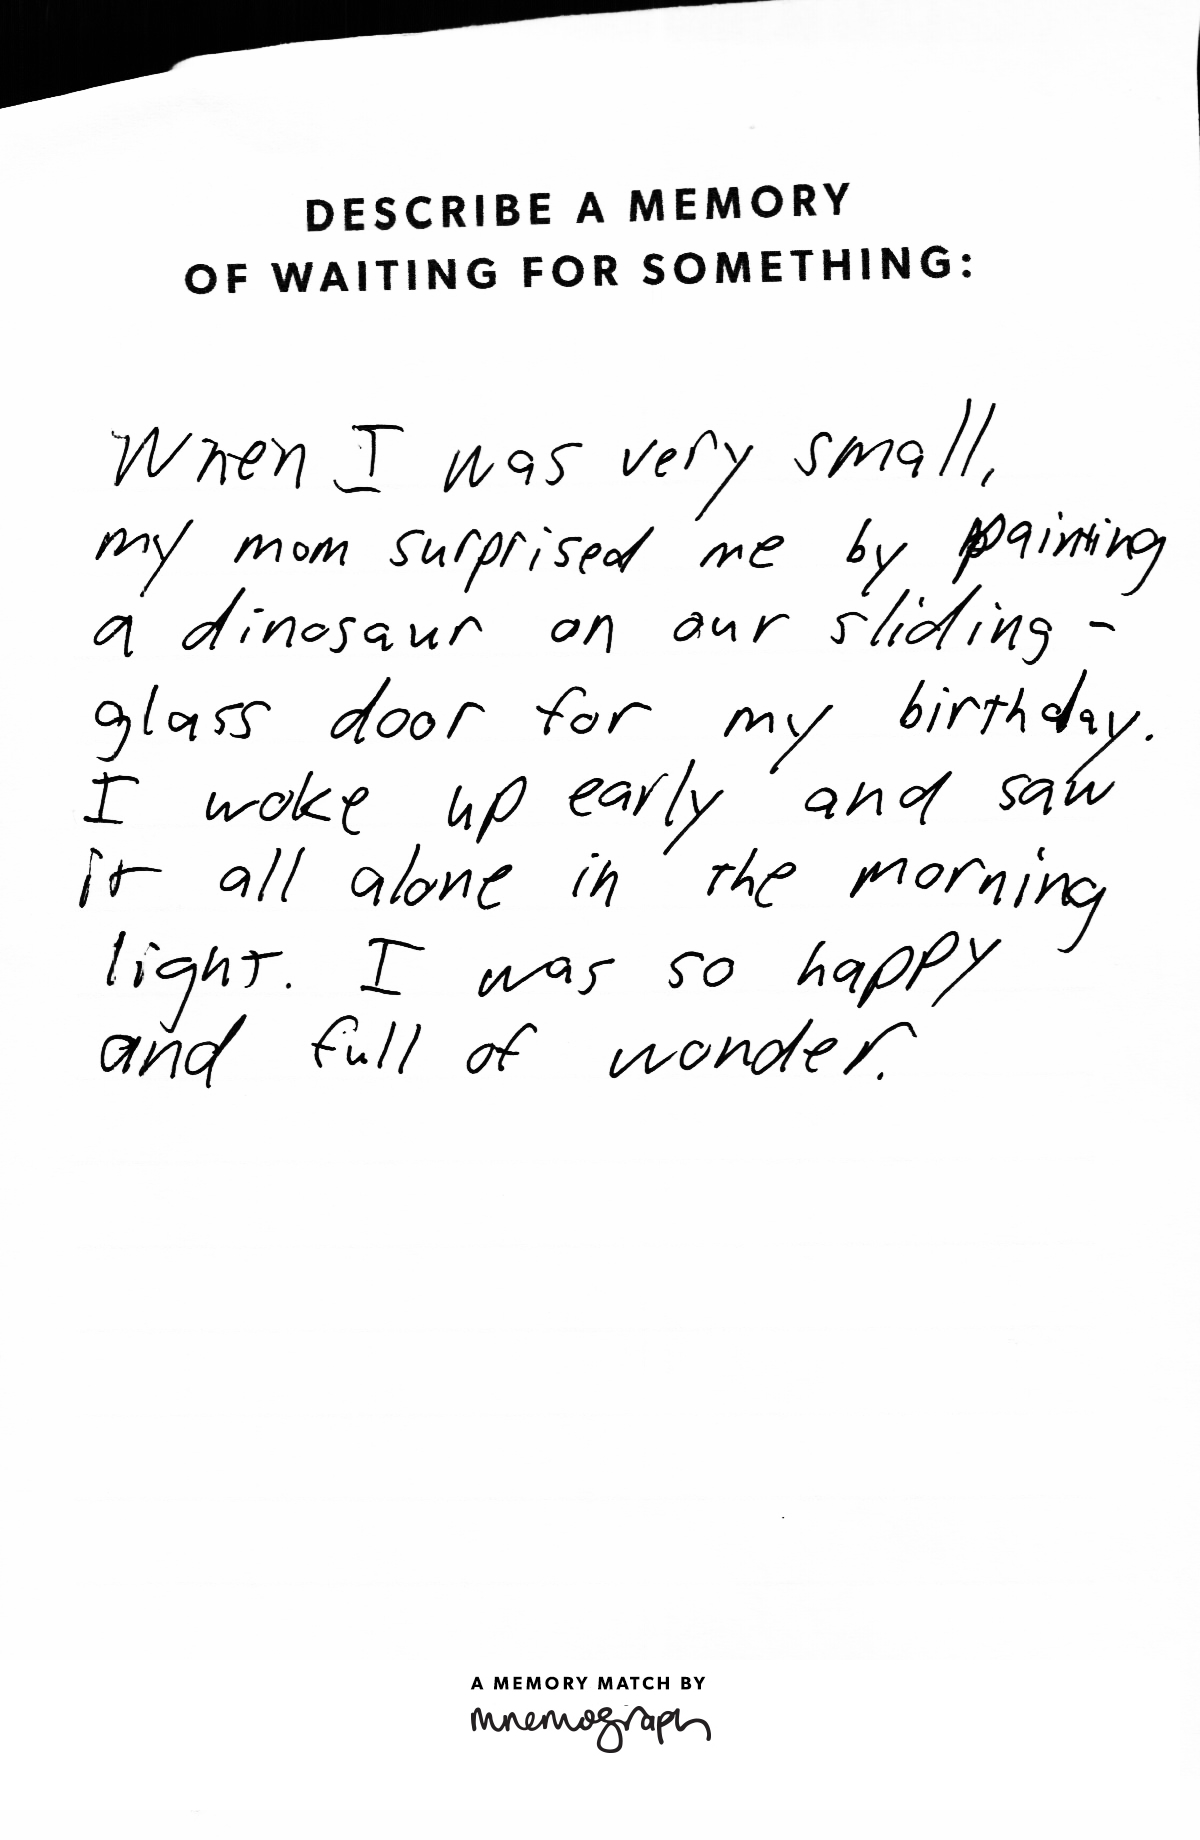 DESCRIBE A MEMORY
OF WAITING FOR SOMETHING:
When I was very small,
my mom surprised me by painting
a dinosaur on our sliding-
glass door for my birthday.
I woke up early and saw
it all alone in the morning
light. I was so happy
and full of wonder.
A MEMORY MATCH BY
mnemograph